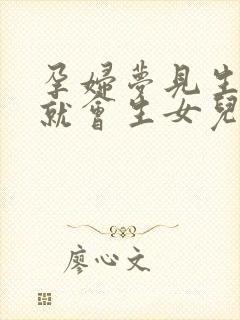 孕婦夢見生
就會生女兒
廖心文